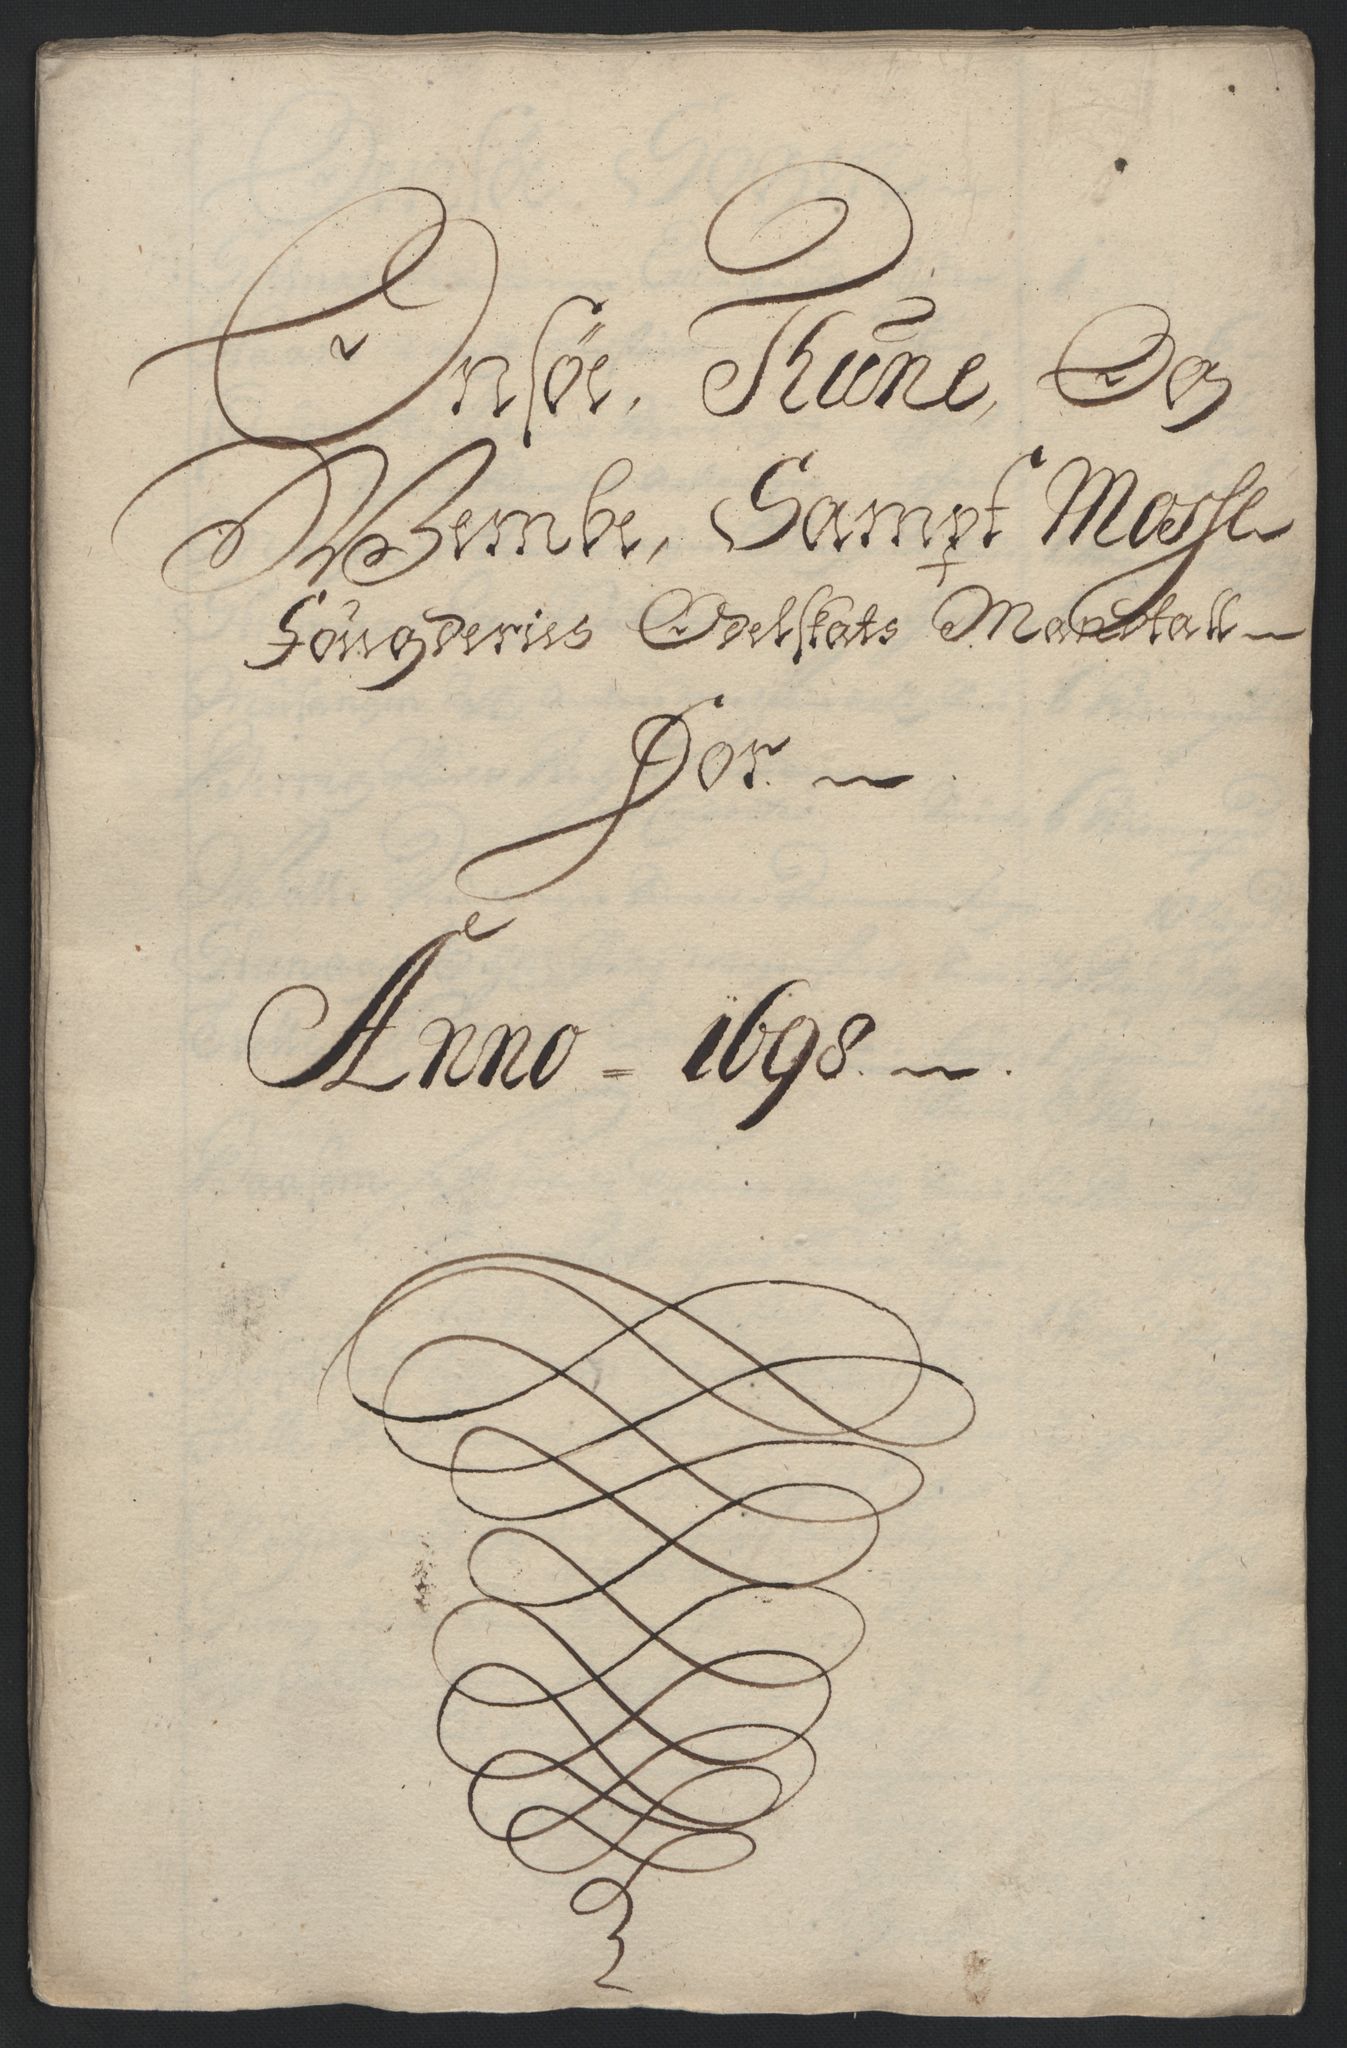 Onsöe, Thüne, Og
Wembe, Sampt Mosse
Föugderies Odelskats Mandtall
For
Anno = 1698.